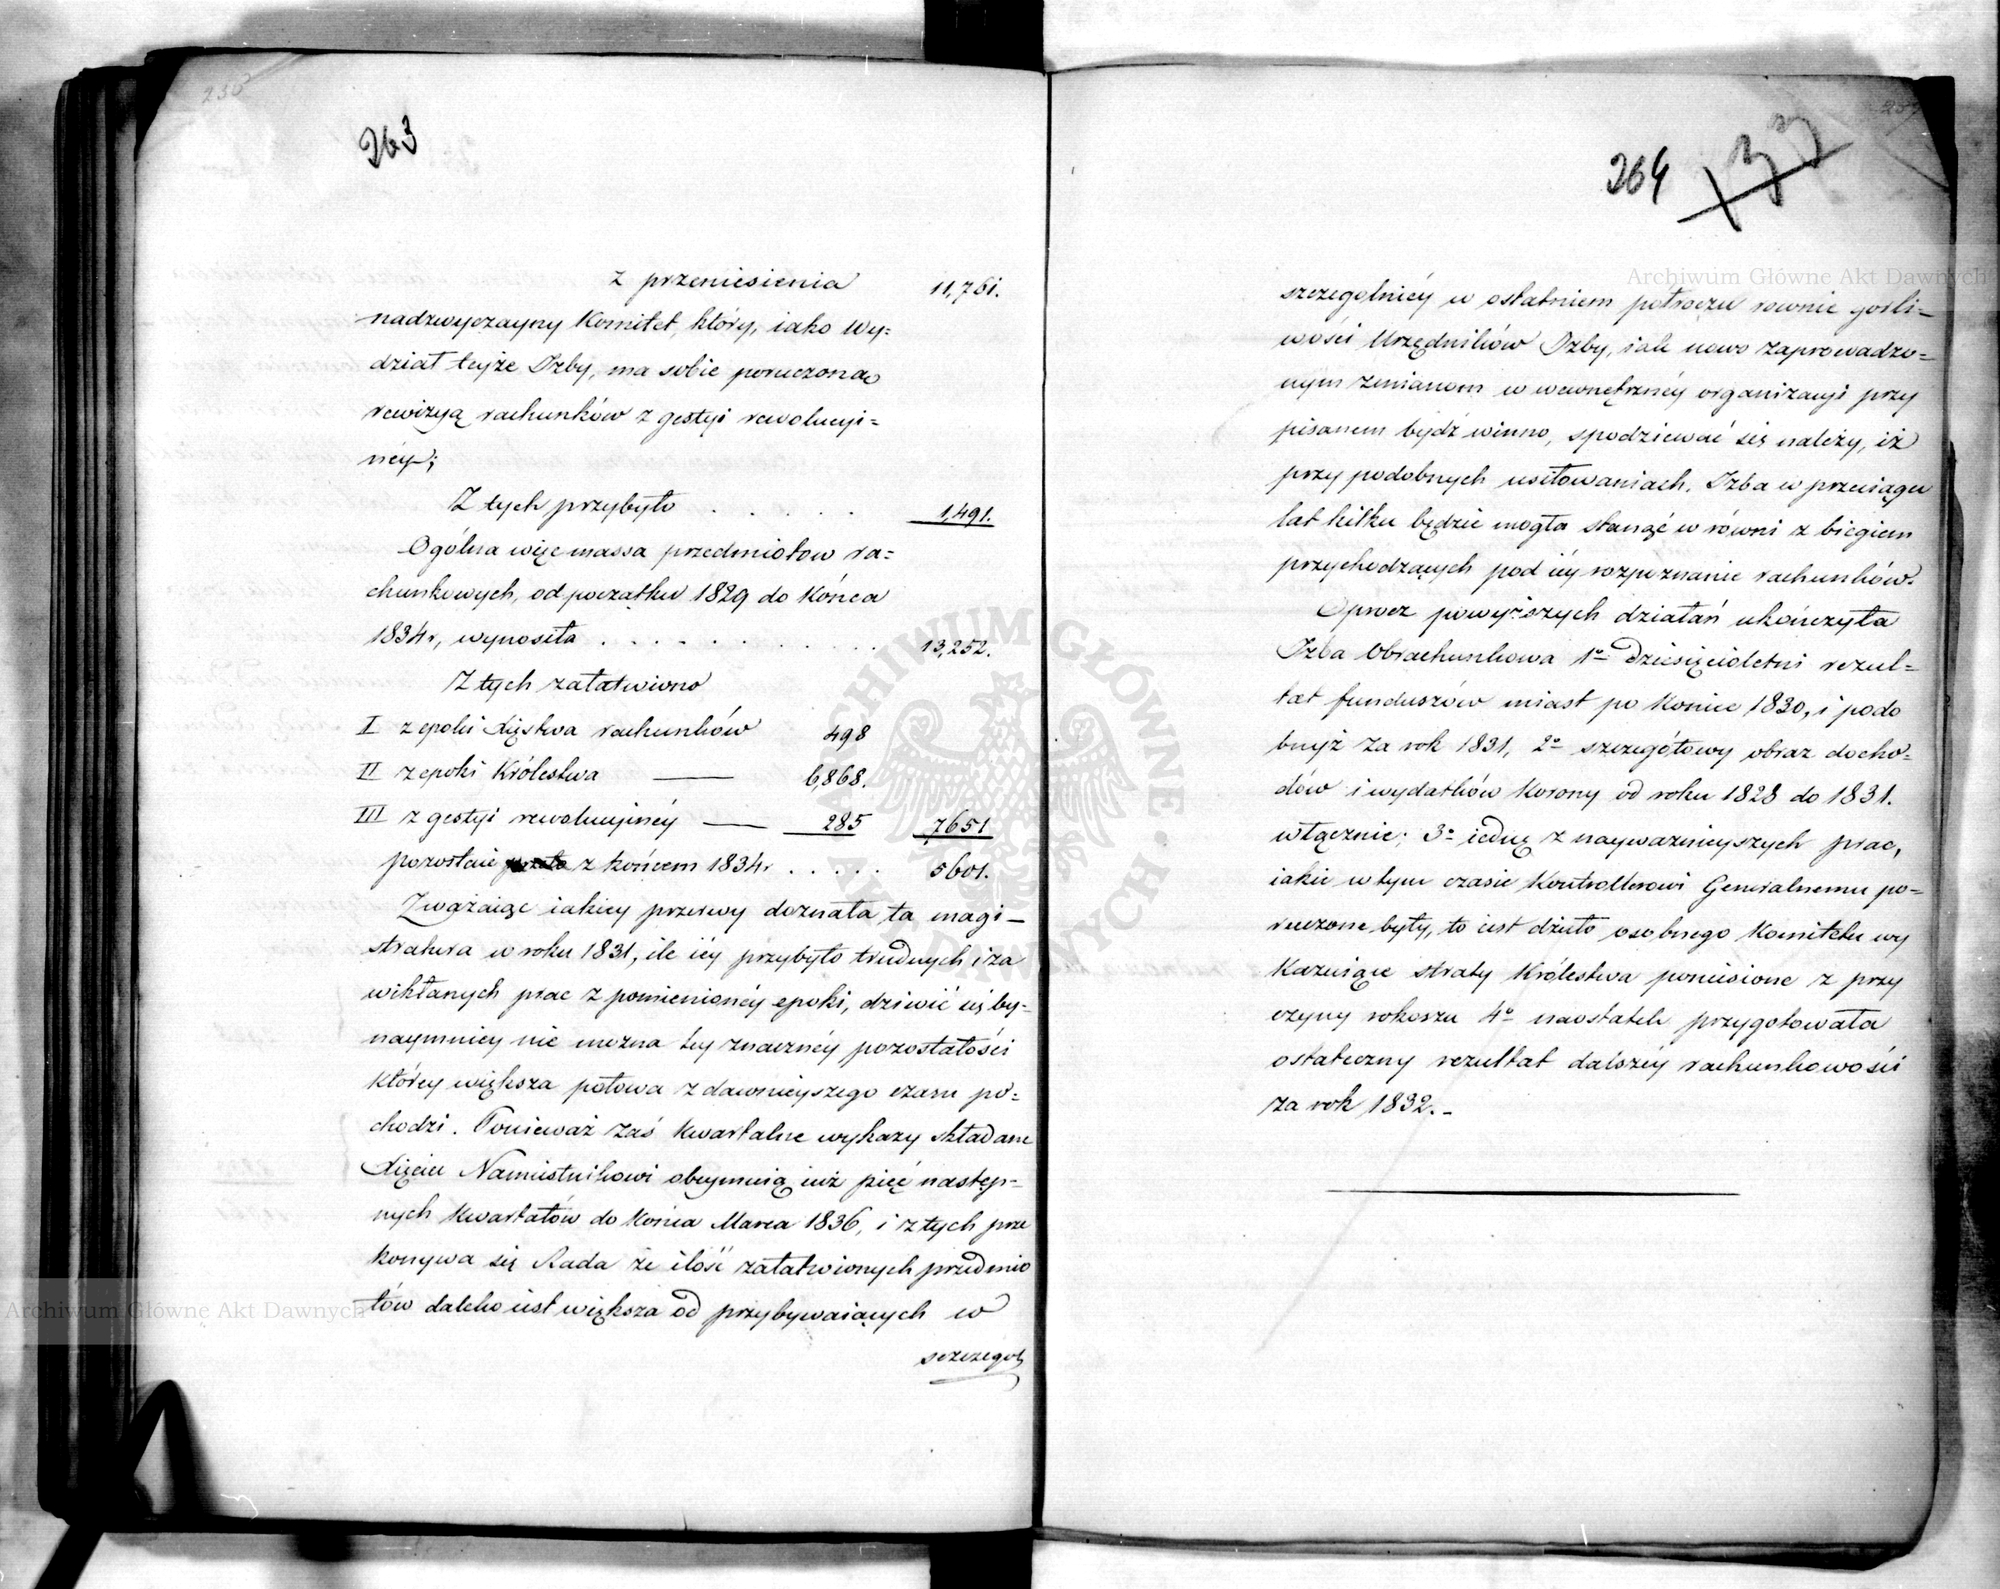 236
263
z przeniesienia 11,761.
nadzwyczayny Komitet, który, iako Wy=
dział teyże Izby, ma sobie poruczoną
rewizyą rachunków z gestyi rewolucyi=
néy;
Z tych przybyło . . . . . 1,491.
Ogólna więc massa przedmiotow ra=
chunkowych, od początku 1829 do Końca
1834 r, wynosiła . . . . . . . . 13,252.
Z tych załatwiono
I z epoki Xięstwa rachunków 498
II z epoki Królestwa —— 6,868.
III z gestyi rewolucyinéy —— 285 7,651
pozostaie z końcem 1834 r . . . . . 5601.
Zważaiąc iakiey przerwy doznała ta magi-
stratura w roku 1831, ile iéy przybyło trudnych i za
wikłanych prac z pomienionéy epoki, dziwić się by-
naymniey nie można téy znacznéy pozostałości
któréy większa połowa z dawnieyszego czasu po=
chodzi. Ponieważ zaś Kwartalne wykazy składane
Xięciu Namiestnikowi obeymuią iuż pięć następ-
nych Kwartałów do Końca Marca 1836, i z tych prze
konywa się Rada że ilość załatwionych przedmio
tów daleko iest większa od przybywaiących w
szczegól
264
szczególniéy w ostatniem półroczu rownie gorli-
wości Urzędników Izby, iak nowo zaprowadzo=
nym zmianom w wewnętrznéy organizacyi przy
pisanem bydź winno, spodziewać się należy, iż
przy podobnych usiłowaniach, Izba w przeciągu
lat kilku będzie mogła stanąć w równi z biegiem
przychodzących pod iéy rozpoznanie rachunków.
Oprocz powyższych działań ukończyła
Izba Obrachunkowa 1o dziesięcioletni rezul=
tat funduszów miast po Koniec 1830, i podo
bnyż za rok 1831, 2o szczegółowy obraz docho=
dów i wydatków Korony od roku 1828 do 1831.
włącznie; 3o iedną z nayważnieyszych prac,
iakie w tym czasie Kontrollerowi Generalnemu po=
ruczone były, to iest dzieło osobnego Komitetu wy
kazuiące straty Królestwa poniesione z przy
czyny rokoszu 4o naostatek przygotowała
ostateczny rezultat dalszéy rachunkowości
za rok 1832.-
Archiwum Główne Akt Dawnych
Archiwum Główne Akt Dawnych
ARCHIWUM GŁÓWNE AKT DAWNYCH